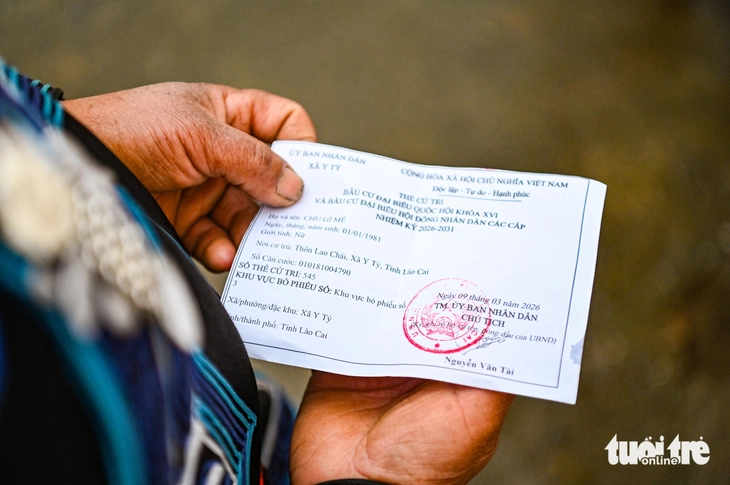 ỦY BAN NHÂN DÂN
XÃ Y TÝ
CỘNG HÒA XÃ HỘI CHỦ NGHĨA VIỆT NAM
Độc lập - Tự do - Hạnh phúc
THẺ CỬ TRI
BẦU CỬ ĐẠI BIỂU QUỐC HỘI KHÓA XVI
VÀ BẦU CỬ ĐẠI BIỂU HỘI ĐỒNG NHÂN DÂN CÁC CẤP
NHIỆM KỲ 2026-2031
Họ và tên: CHU GÌ MÊ
Ngày, tháng, năm sinh: 01/01/1981
Giới tính: Nữ
Nơi cư trú: Thôn Lao Chải, Xã Y Tý, Tỉnh Lào Cai
Số Căn cước: 010181004790
SỐ THẺ CỬ TRI: 545
KHU VỰC BỎ PHIẾU SỐ: Khu vực bỏ phiếu số
3
Xã/phường/đặc khu: Xã Y Tý
Tỉnh/thành phố: Tỉnh Lào Cai
Ngày 09 tháng 03 năm 2026
TM. ỦY BAN NHÂN DÂN
CHỦ TỊCH
đóng dấu của UBND)
Nguyễn Văn Tài
tuổi trẻ
online